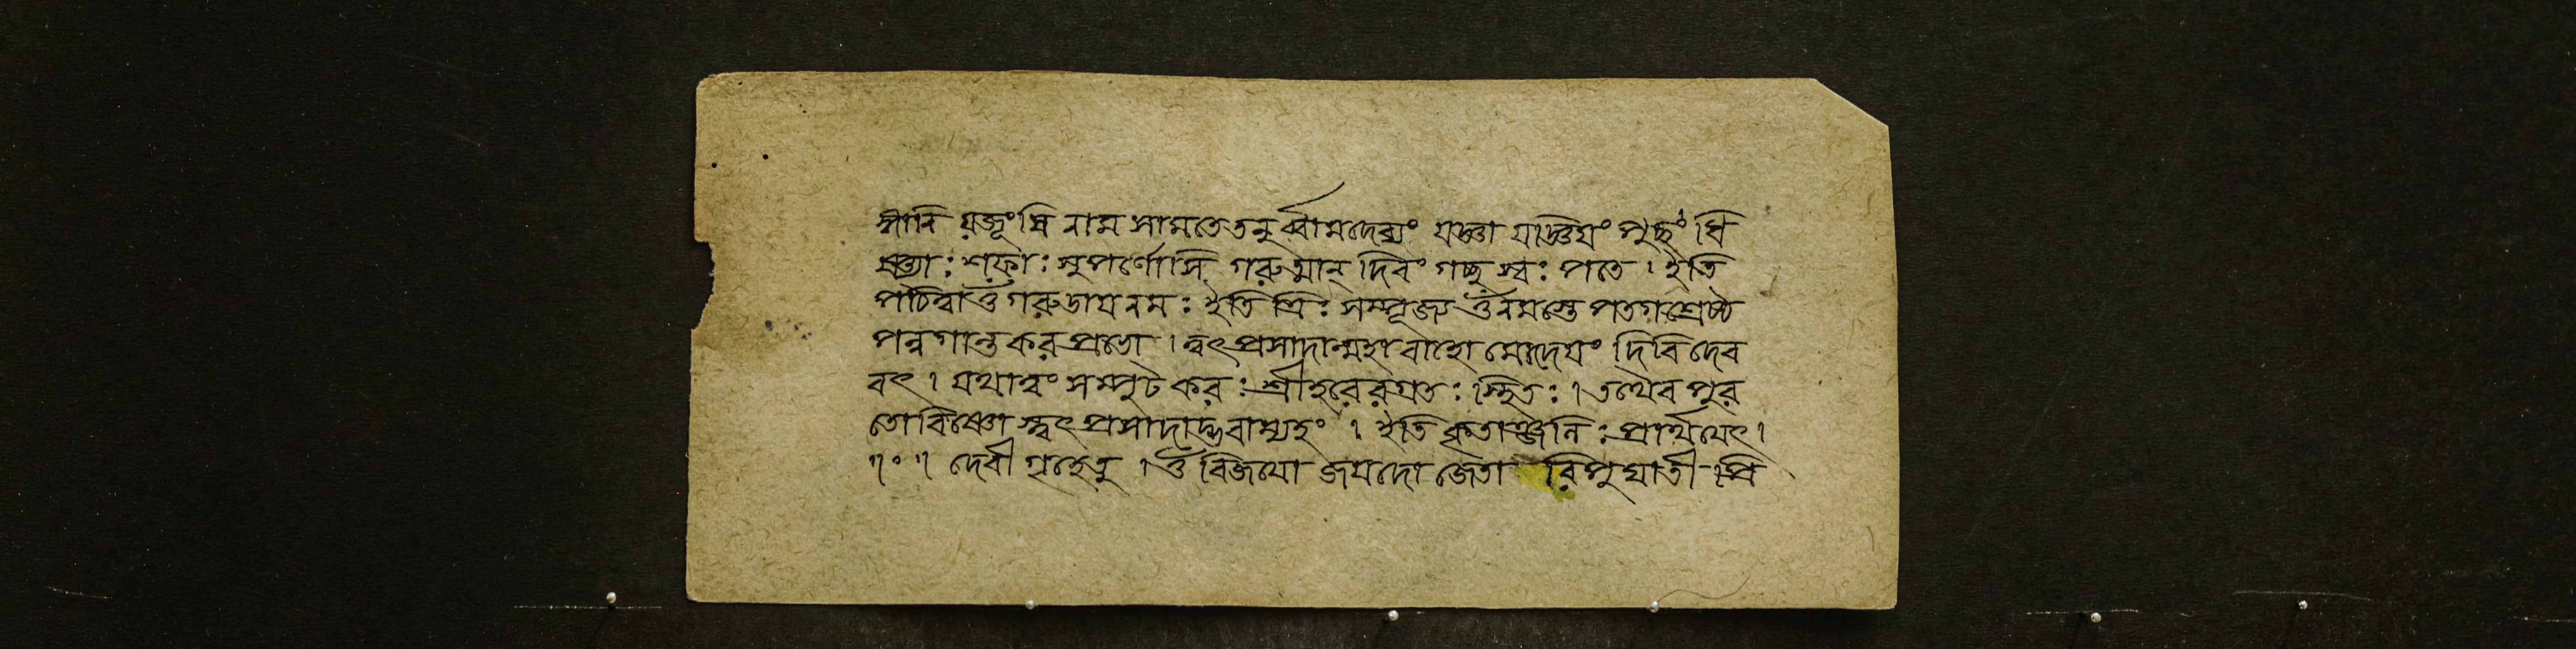 ঙ্গানি যজূংষি নাম সামতে তনুর্ব্বামদেব্যং যজ্ঞা যজ্ঞিযং পুচ্ছং ধি
ষ্ণ্যাঃ শফাঃ সুপর্ণোসি গরুত্মান্ দিবং গচ্ছ স্বঃ পতে । ইতি
পঠিত্বা ওঁ গরুডায নমঃ ইতি ত্রিঃ সম্পূজ্য ওঁ নমস্তে পতগশ্রেষ্ঠ
পন্নগান্তকর প্রভো । ত্বৎপ্রসাদান্মহাবাহো মোদেযং দিবি দেব
বৎ । যথা ত্বং সম্পুটকরঃ শ্রীহরেরগ্রতঃ স্থিতঃ । তথৈব পুর
তো বিষ্ণোস্ত্বৎপ্রসাদাদ্ভবাম্যহং । ইতি কৃতাঞ্জলিঃ প্রার্থযেৎ ।
॥ ० ॥ দেবী গৃহেতু । ওঁ বিজযো জযদো জেতা রিপুঘাতী প্রি